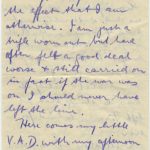 the effect that I am
otherwise. I am just a
trifle worn out but have
often felt a good deal
worse & still carried on
in fact if the war was
on I should never have
left the line.
Here comes my little
V.A.D. with my afternoon